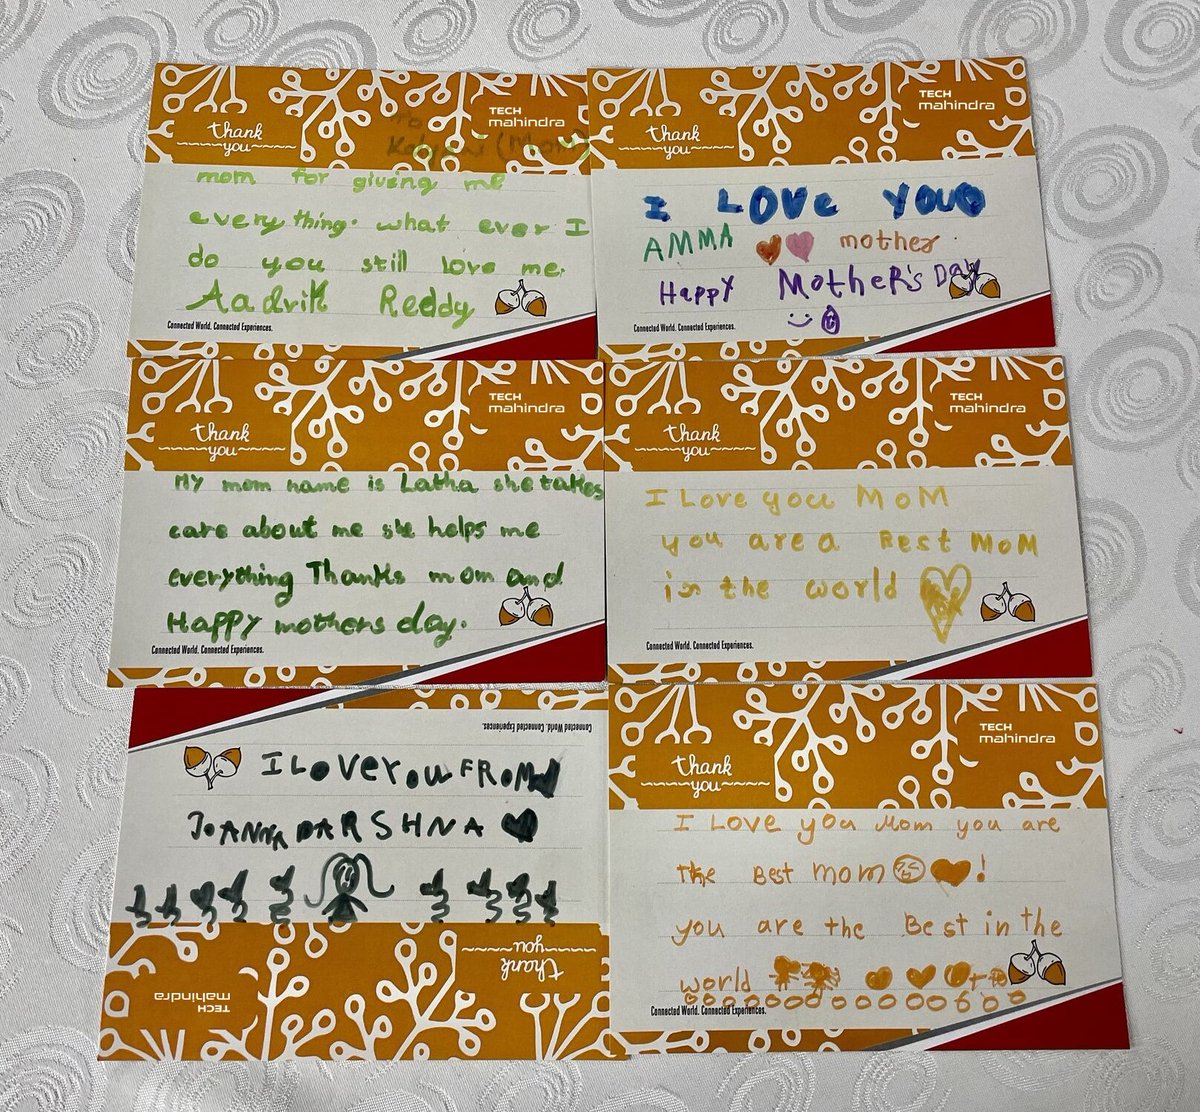 thank
you
TECH
mahindra
(Mom)
mom for giving me
everything. what ever I
do you still love me.
Aadvik Reddy
Connected World. Connected Experiences.
thank
you
TECH
mahindra
I LOVe YOU
AMMA mother
Happy MotheR's Day
Connected World. Connected Experiences.
thank
you
TECH
mahindra
My mom name is Latha she takes
care about me she helps me
everything Thanks mom and
Happy mothers day.
Connected World. Connected Experiences.
thank
you
TECH
mahindra
I Love you MoM
you are a Best MoM
in the world
Connected World. Connected Experiences.
Connected World. Connected Experiences.
I LOVE YOU FROM
JOANNA DARSHNA
thank
you
TECH
mahindra
thank
you
TECH
mahindra
I LOVE you Mom you are
the Best mom !
you are the Best in the
world
Connected World. Connected Experiences.